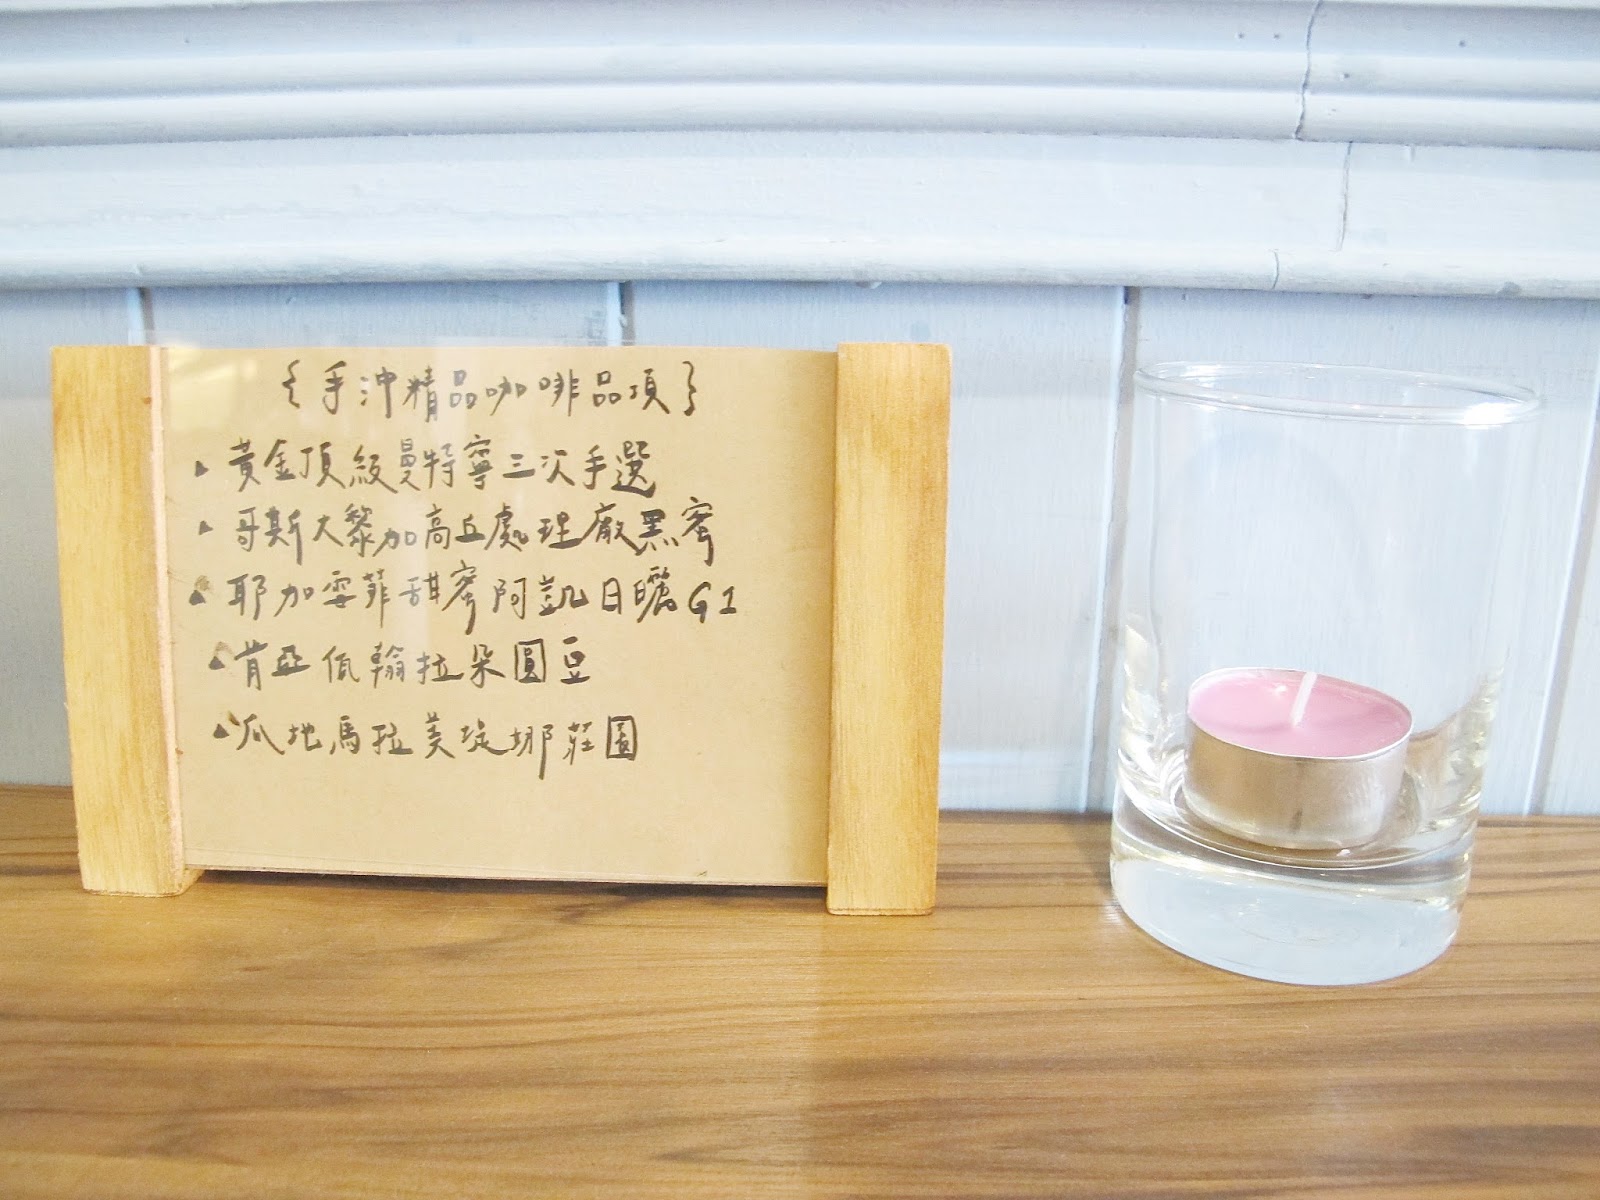 {手沖精品咖啡品項}
▲黃金頂級曼特寧三次手選
▲哥斯大黎加高丘處理廠黑蜜
▲耶加雪菲甜蜜阿凱日曬G1
▲肯亞佩翰拉朵圓豆
▲瓜地馬拉美堤娜莊園